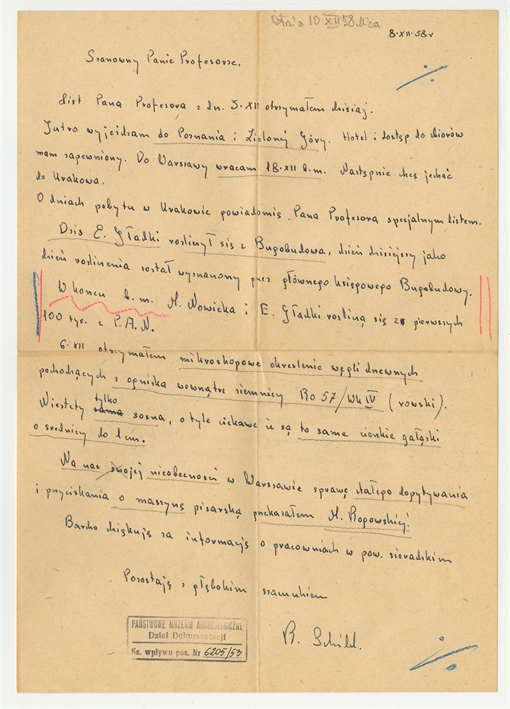 dnia 10 XII 58
8·XII·58 r
Szanowny Panie Profesorze.
List Pana Profesora z dn. 5·XII otrzymałem dzisiaj.
Jutro wyjeżdżam do Poznania i Zielonej Góry. Hotel i dostęp do zbiorów
mam zapewniony. Do Warszawy wracam 18·XII b.m. Następnie chcę jechać
do Krakowa.
O dniach pobytu w Krakowie powiadomię Pana Profesora specjalnym listem.
Dziś E. Gładki rozliczył się z Bugobudowa, dzień dzisiejszy jako
dzień rozliczenia został wyznaczony przez głównego księgowego Bugobudowy.
W końcu b.m. H. Nowicka i E. Gładki rozliczą się z pierwszych
100 tys. z P.A.N.
6·XII otrzymałem mikroskopowe określenie węgli drzewnych
pochodzących z ogniska wewnątrz ziemnicy Bo 57/Wk IV (rowski).
Niestety tylko sosna, o tyle ciekawe że są to same cienkie gałązki
o średnicy do 1 cm.
Na czas swojej nieobecności w Warszawie sprawę stałego dopytywania
i przyciskania o maszynę pisarską przekazałem H. Popowskiej.
Bardzo dziękuję za informację o pracowniach w pow. sieradzkim
Pozostaję z głębokim szacunkiem
R. Schild.
PAŃSTWOWE MUZEUM ARCHEOLOGICZNE
Dział Dokumentacji
Ks. wpływu poz. Nr 6205/53